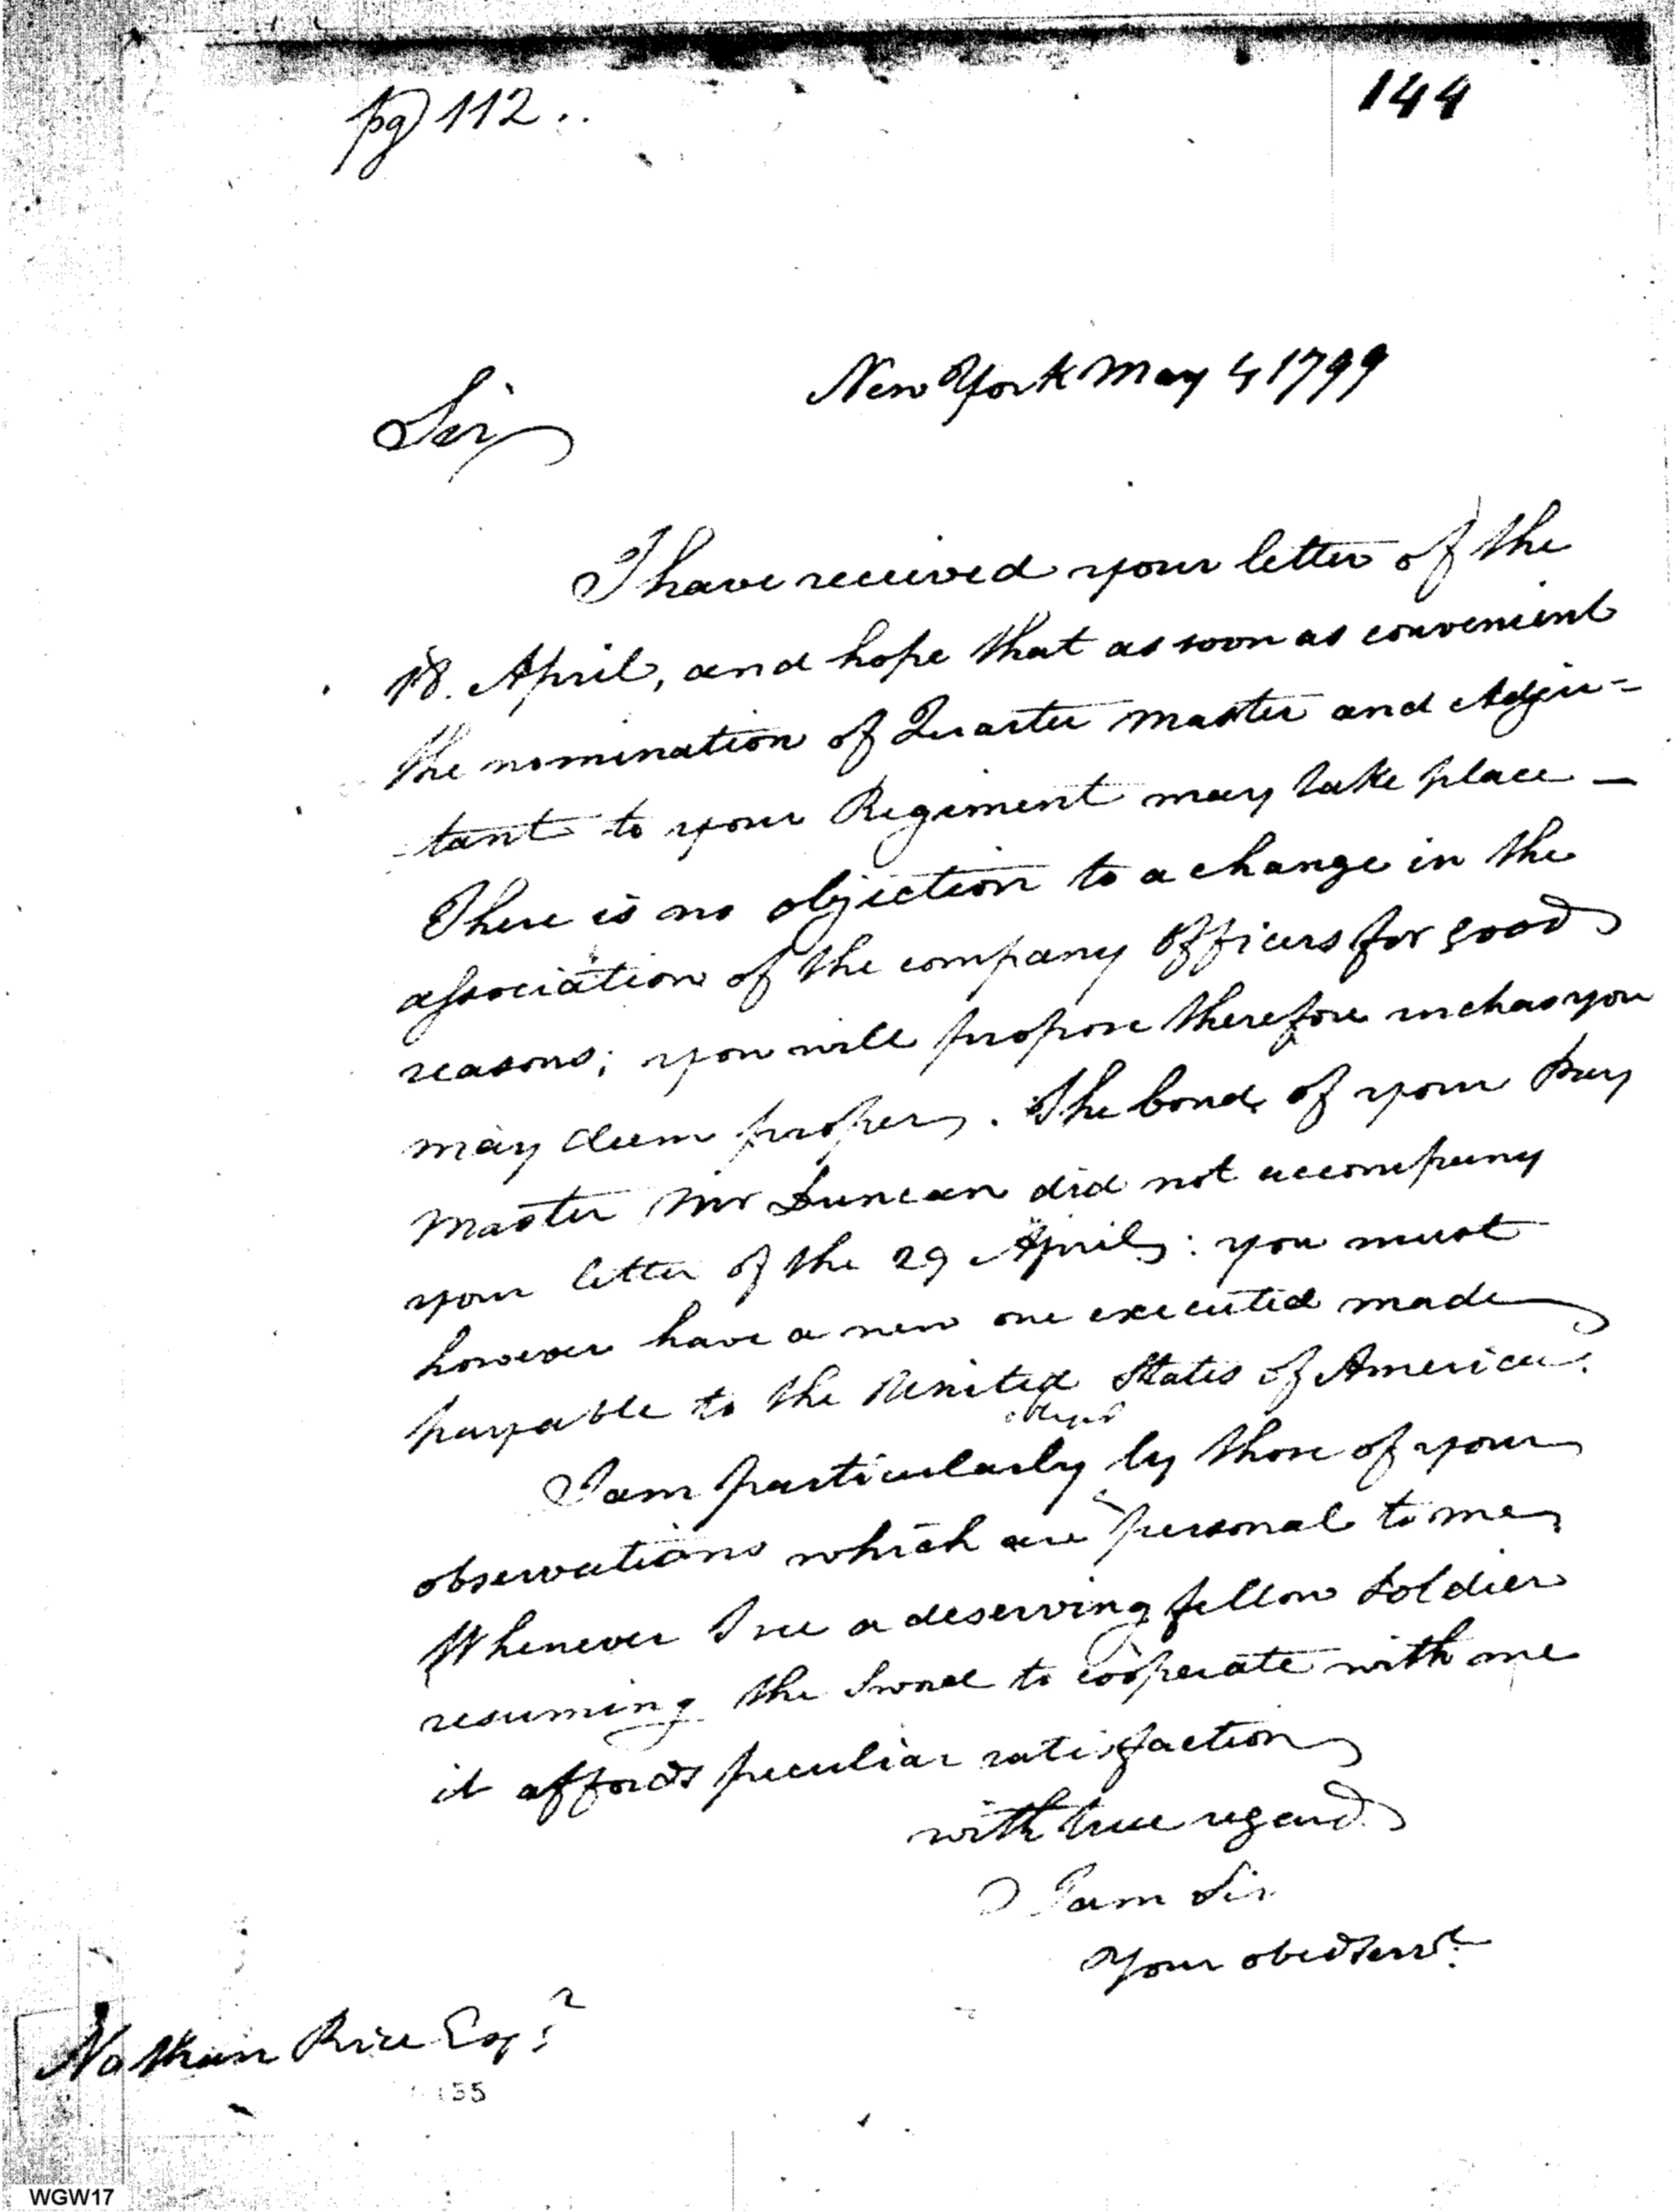 pg 112..
144
New York May 4 1799
Sir
I have received your letter of the
18. April, and hope that as soon as convenient
the nomination of Quarter master and Adju=
-tant to your Regiment may take place —
There is no objection to a change in the
association of the company Officers for good
reasons; you will propose therefore such as you
may deem proper. The bond of your Pay
Master Mr Duncan did not accompany
your letter of the 29 April: you must
however have a new one executed made
payable to the United States of America.
obliged
I am particularly by those of your
observations which are personal to me,
Whenever I see a deserving fellow Soldier
resuming the Sword to cooperate with me
it affords peculiar satisfaction
with true regard
I am Sir
Your obed servt.
Nathan Rice Esqr
155
WGW17